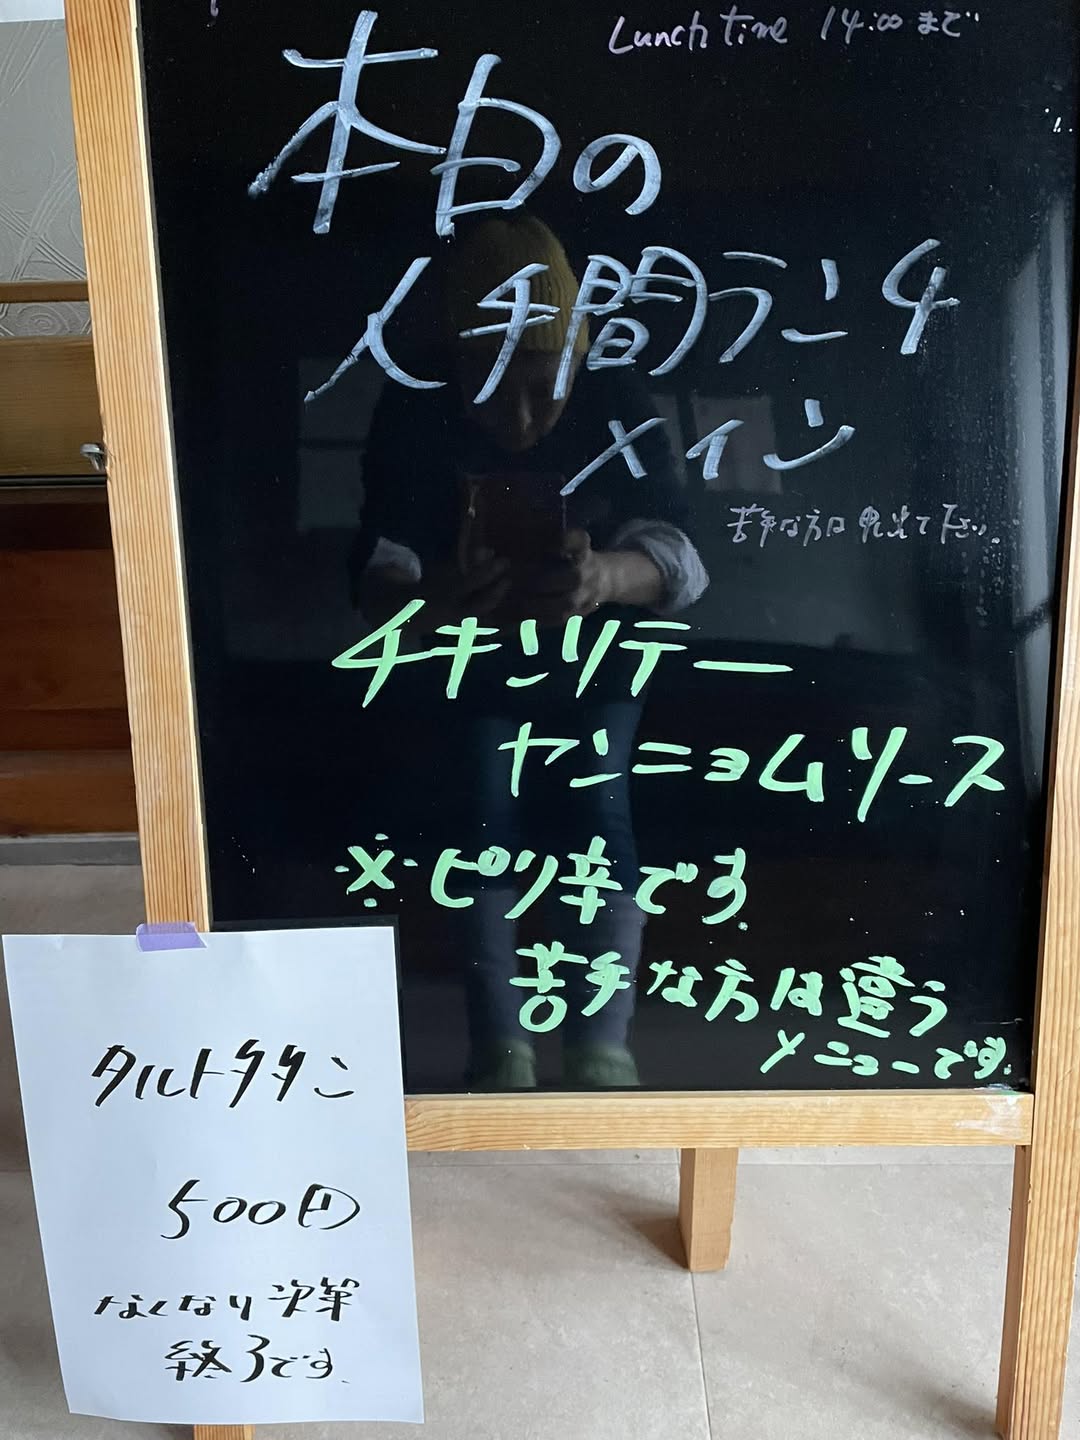 Lunch time 14:00まで
本日の
人チ間ランチ
メイン
苦手な方は申出て下さい。
チキンソテー
ヤンニョムソース
※ピリ辛です
苦手な方は違う
メニューです。
タルトタタン
500円
なくなり次第
終了です。